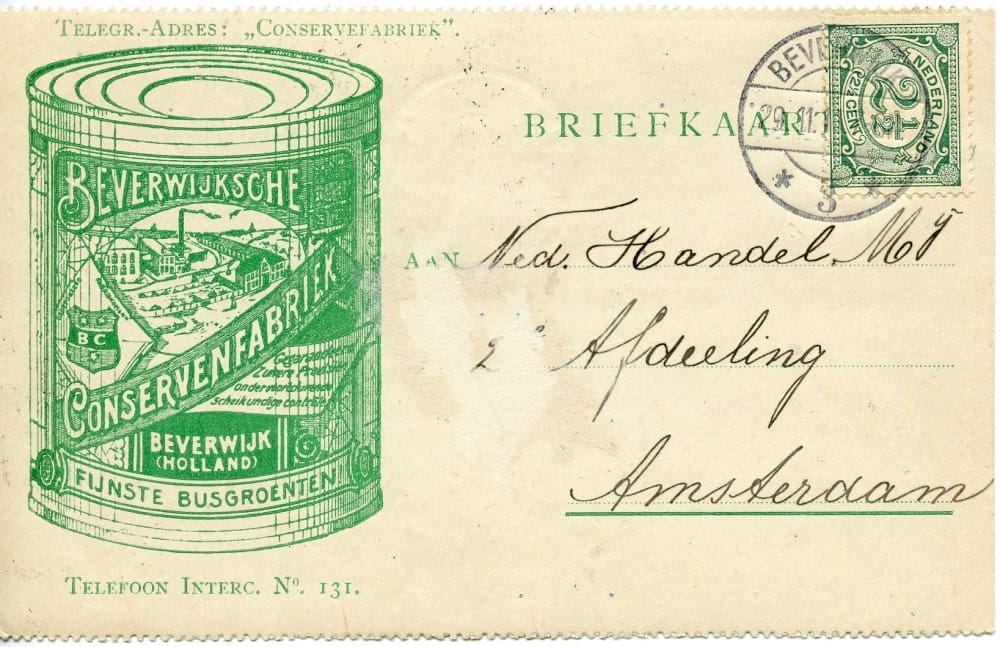 TELEGR.-ADRES: „CONSERVEFABRIEK”.
BEVERWIJKSCHE
CONSERVENFABRIEK
BC
Gegarandeerd
Zuivere Prod
onder voortdurende
Scheikundige contrôle
BEVERWIJK
(HOLLAND)
FIJNSTE BUSGROENTEN
TELEFOON INTERC. Nº. 131.
BRIEFKAAR
BEVE
29.11.1
3
NEDERLAND
2½
(2½ CENT)
AAN Ned. Handel. Mij
2e Afdeeling
Amsterdam